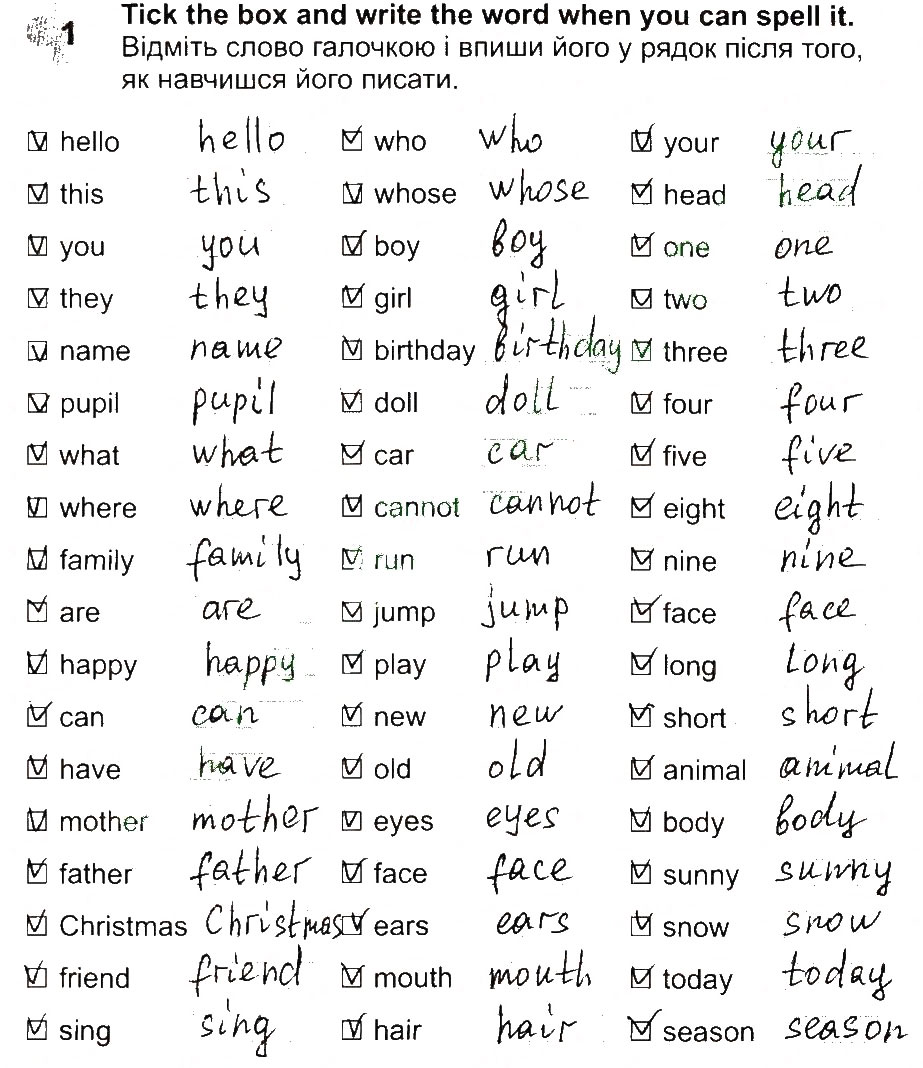 1 Tick the box and write the word when you can spell it.
Відміть слово галочкою і впиши його у рядок після того,
як навчишся його писати.
hello hello who who your your
this this whose whose head head
you you boy boy one one
they they girl girl two two
name name birthday birthday three three
pupil pupil doll doll four four
what what car car five five
where where cannot cannot eight eight
family family run run nine nine
are are jump jump face face
happy happy play play long long
can can new new short short
have have old old animal animal
mother mother eyes eyes body body
father father face face sunny sunny
Christmas Christmas ears ears snow snow
friend friend mouth mouth today today
sing sing hair hair season season